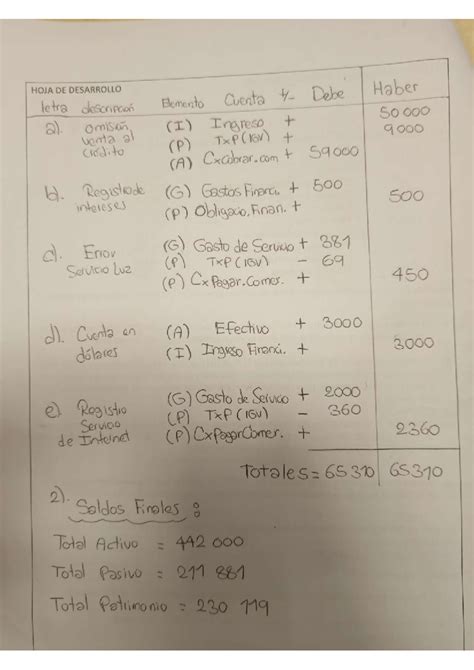 HOJA DE DESARROLLO
letra descripción Elemento Cuenta +/- Debe Haber
a). omisión (I) Ingreso + 50 000
venta al (P) TxP (IGV) + 9000
crédito (A) Cxcobrar.com + 59000
b). Registro de (G) Gastos Financi. + 500
intereses (P) Obligacio. Finan. + 500
c). Error (G) Gasto de Servicio + 381
Servicio Luz (P) TxP (IGV) - 69
(P) CxPagar.Comer. + 450
d). Cuenta en (A) Efectivo + 3000
dólares (I) Ingreso Financi. + 3000
e). Registro (G) Gasto de Servicio + 2000
Servicio (P) TxP (IGV) - 360
de Internet (P) CxPagarComer. + 2360
Totales = 65310 65310
2). Saldos Finales :
Total Activo = 442 000
Total Pasivo = 211 881
Total Patrimonio = 230 119